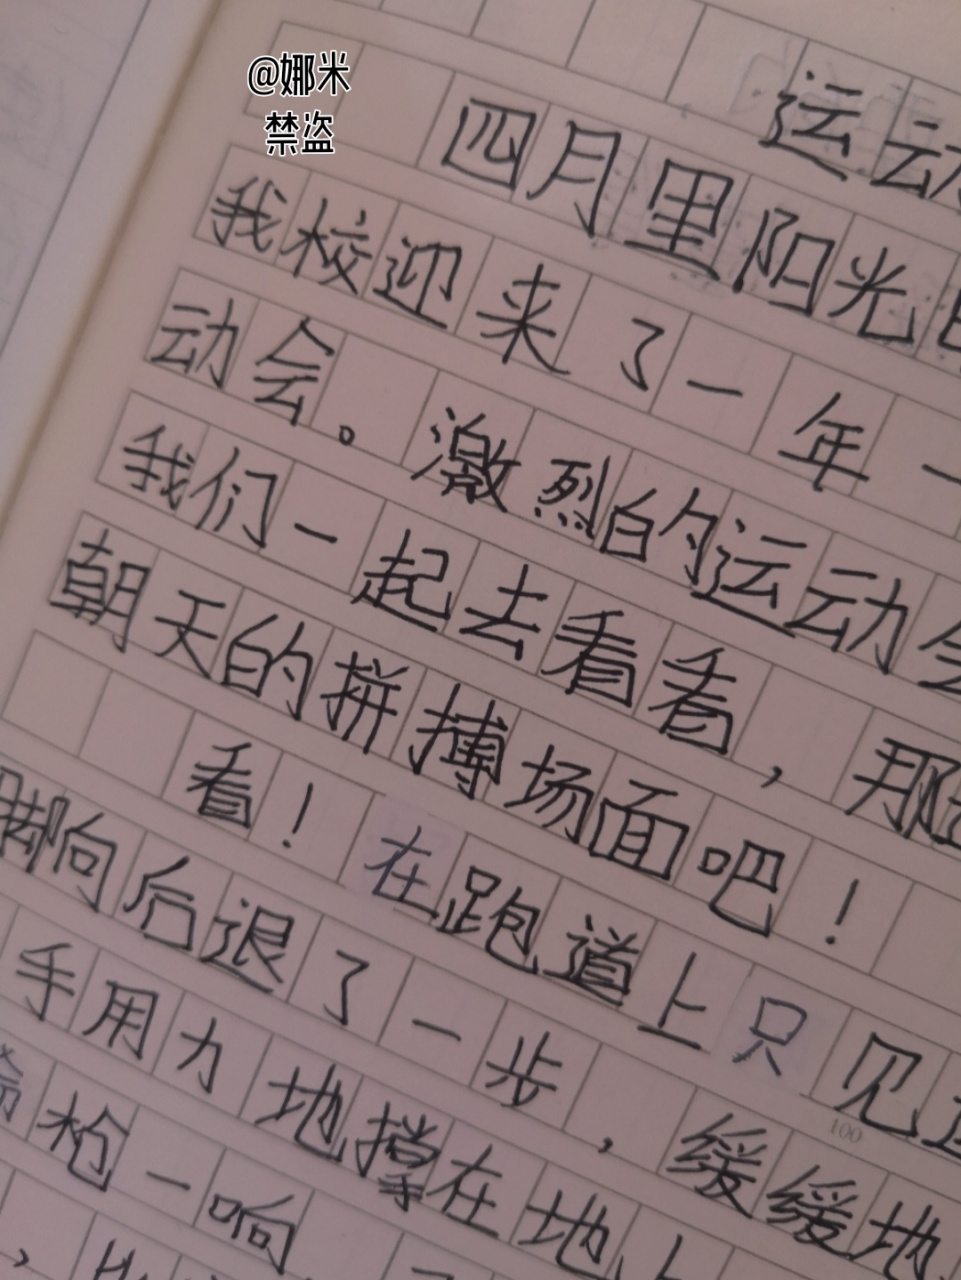 @娜米
禁盗
运动
四月里阳光
我校迎来了一年一
动会。激烈的运动会
我们一起去看看,那
朝天的拼搏场面吧!
看!在跑道上只见
脚向后退了一步,缓缓地
手用力地撑在地上
枪一响